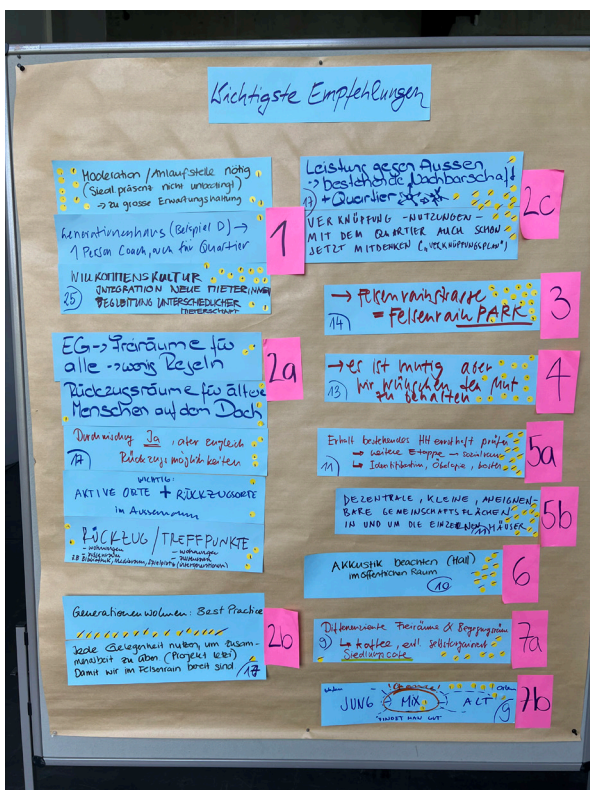 Wichtigste Empfehlungen
Moderation / Anlaufstelle nötig
(Siedl. präsenz nicht unbedingt)
→ zu grosse Erwartungshaltung
Generationenhaus (Beispiel D) →
1 Person Coach, auch für Quartier
1
WILLKOMMENSKULTUR
INTEGRATION NEUE MIETERINNEN
BEGLEITUNG UNTERSCHIEDLICHER
MIETERSCHAFT
25
EG → Freiräume für
alle → wenig Regeln
2a
Rückzugsräume für ältere
Menschen auf dem Dach
Durchmischung Ja, aber zugleich
Rückzugsmöglichkeiten
17
WICHTIG:
AKTIVE ORTE + RÜCKZUGSORTE
im Aussenraum
RÜCKZUG / TREFFPUNKTE
- wohnungen
- wohnungen
Generationenwohnen: Best Practice
2b
Jede Gelegenheit nutzen, um Zusam-
menarbeit zu üben (Projekt jetzt)
Damit wir im Felsenrain bereit sind
17
Leistung gegen Aussen
→ bestehende Nachbarschaft
+ Quartier
17
2c
VERKNÜPFUNG -NUTZUNGEN-
MIT DEM QUARTIER AUCH SCHON
JETZT MITDENKEN („VERKNÜPFUNGSPLAN")
→ Felsenrainstrasse
= Felsenrain PARK
14
3
→ es ist mutig aber
wir wünschen den Mut
zu behalten
13
4
Erhalt bestehendes HH ernsthaft prüfen
→ weitere Etappe →
↳ Identifikation, Ökologie, Kosten
11
5a
DEZENTRALE, KLEINE, ANEIGNEN-
BARE GEMEINSCHAFTSFLÄCHEN
IN UND UM DIE EINZELNEN HÄUSER
11
5b
AKKUSTIK beachten (Hall)
im öffentlichen Raum
10
6
Differenzierte Freiräume & Begegnungsräume
9
↳ Kaffee, evtl. selbstorganisiert
Siedlungscafe
7a
unten
oben
JUNG MIX ALT
"FINDET MAN GUT"
9
7b